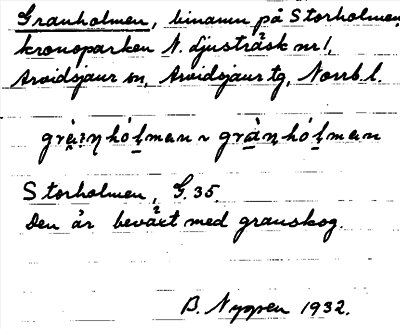 Granholmen, binamn på Storholmen,
kronoparken N. Ljusträsk nr 1,
Arvidsjaur sn, Arvidsjaur tg, Norrb. l.
Storholmen, G. 35.
Den är beväxt med granskog.
B. Nyppen 1932.